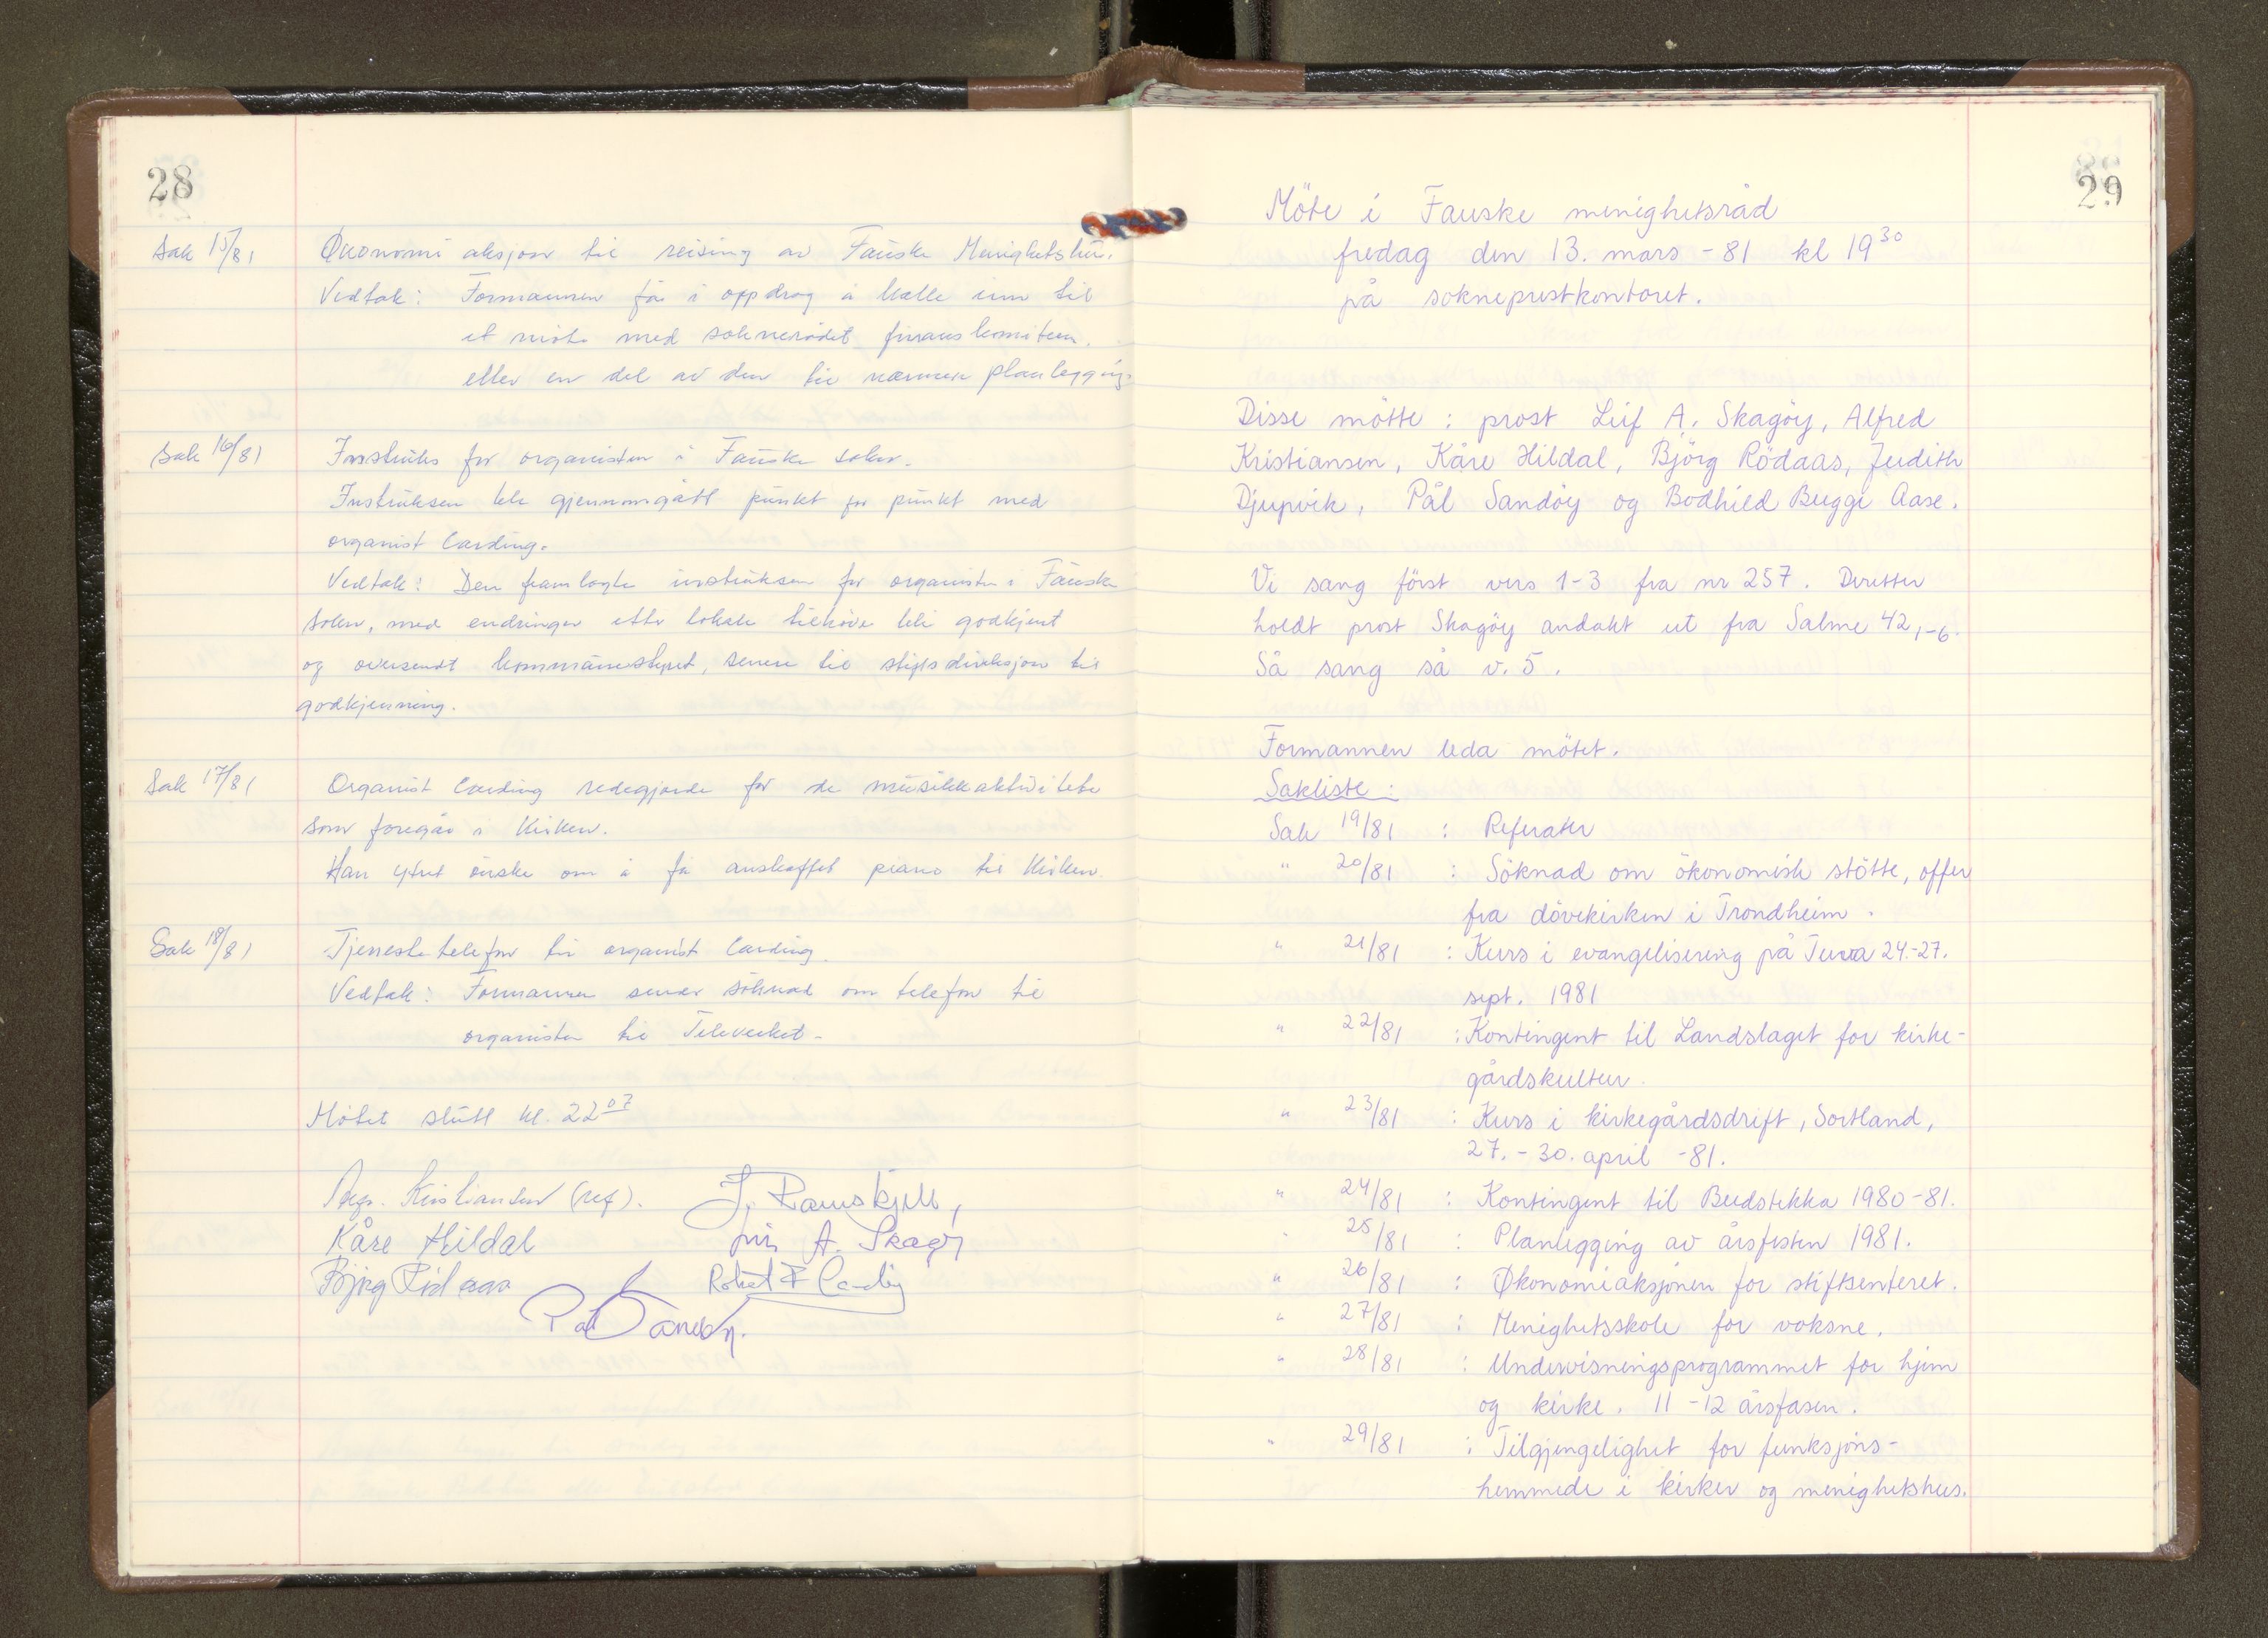 28
Sak 15/81 Økonomi aksjon til reising av Fauske Menighetshus.
Vedtak: Formannen får i oppdrag å kalle inn til
et møte med soknerådet finanskomiteen.
eller en del av den til nærmere planlegging.
Sak 16/81 Instruks for organisten i Fauske sokn.
Instruksen ble gjennomgått punkt for punkt med
organist Carding.
Vedtak: Den framlagte instruksen for organisten i Fauske
sokn, med endringer etter lokale behov ble godkjent
og oversendt kommunestyret, senere til stiftsdireksjon til
godkjenning.
Sak 17/81 Organist Carding redegjorde for de musikkaktiviteter
som foregår i Kirken.
Han ytret ønske om å få anskaffet piano til Kirken
Sak 18/81 Tjenestetelefon til organist Carding.
Vedtak: Formannen sender søknad om telefon til
organisten til Televerket.
Møtet slutt kl. 22 07
Kristiansen (ref). J. Ramskjell,
Kåre Hildal A. Skagöy
Bjørg Rödaas Robert F Carding
Pål Sandöy.
29
Möte i Fauske menighetsråd
fredag den 13. mars -81 kl 19 30
på sokneprestkontoret.
Disse mötte : prost Leif A. Skagöy, Alfred
Kristiansen, Kåre Hildal, Björg Rödaas, Judith
Djupvik, Pål Sandöy og Bodhild Bugge Aase.
Vi sang först vers 1-3 fra nr 257. Deretter
holdt prost Skagöy andakt ut fra Salme 42,1-6.
Så sang så v. 5.
Formannen leda mötet.
Sakliste :
Sak 19/81 : Referater
" 20/81 : Söknad om ökonomisk stötte, offer
fra dövekirken i Trondheim.
" 21/81 : Kurs i evangelisering på Tuva 24.-27.
sept. 1981
" 22/81 : Kontingent til Landslaget for kirke-
gårdskultur.
" 23/81 : Kurs i kirkegårdsdrift, Sortland,
27.-30. april -81.
" 24/81 : Kontingent til Budstekka 1980-81.
" 25/81 : Planlegging av årsfesten 1981.
" 26/81 : Økonomiaksjonen for stiftsenteret.
" 27/81 : Menighetsskole for voksne.
" 28/81 : Undervisningsprogrammet for hjem
og kirke. 11-12 årsfasen.
" 29/81 : Tilgjengelighet for funksjons-
hemmede i kirker og menighetshus.